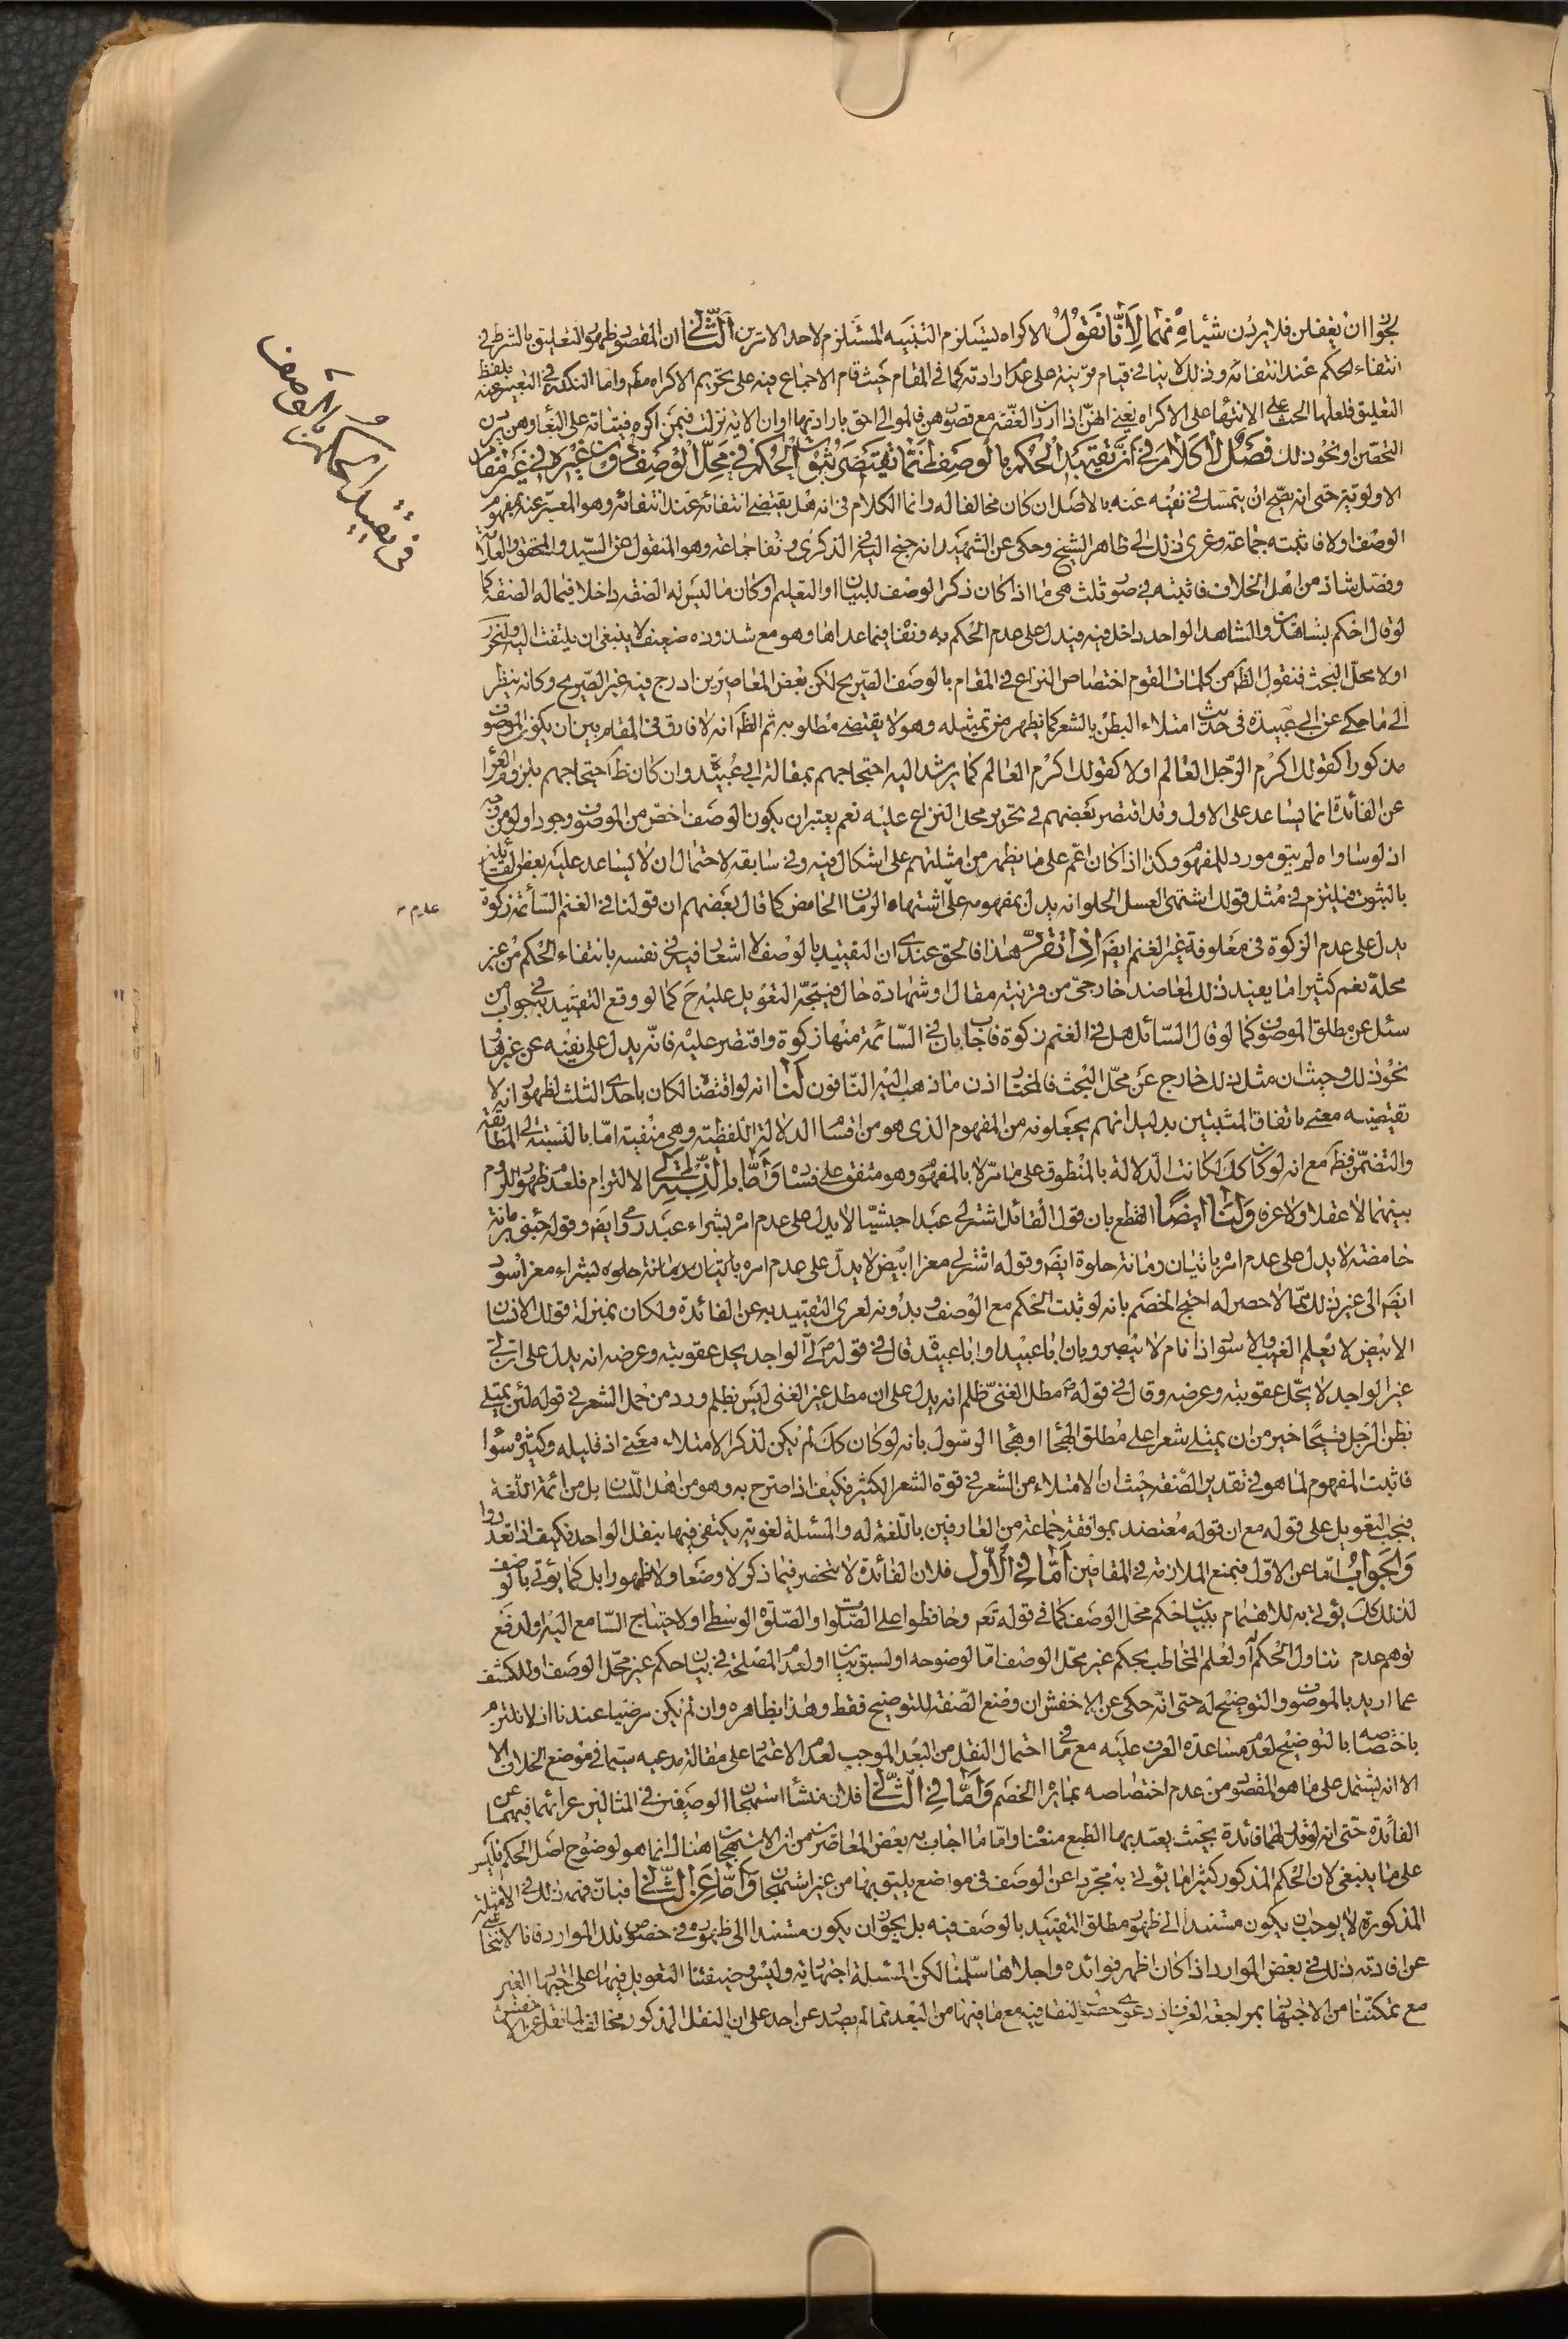 لجواز ان يغفلن فلا يردن شيئا منهما لانا نقول الاكراه يستلزم التنبيه المستلزم لاحد الامرين الثاني ان المقصود ظهور التعليق بالشرط في
انتفاء الحكم عند انتفائه وذلك لا ينافي قيام قرينة على عدم ارادته كما في المقام حيث قام الاجماع فيه على تحريم الاكراه مطلقا واما النكتة في التعبير عنه بلفظ
التعليق فلعلها الحث على الانتهاء على الاكراه يعني انهن اذا اردن العفة مع قصورهن فالموالي احق بارادتها او ان الاية نزلت فيمن اكره فتياته على البغاء وهن يردن
التحصن او نحو ذلك فصل لا كلام في ان تقييد الحكم بالوصف انما يقتضي ثبوت الحكم في محل الوصف دون غيره في غير مقام
الاولوية حتى انه يصح ان يتمسك في نفيه عنه بالاصل ان كان مخالفا له وانما الكلام في انه هل يقتضي انتفائه عند انتفائه وهو المعبر عنه بمفهوم
الوصف اولا فاثبته جماعة وعزى ذلك الى ظاهر الشيخ وحكي عن الشهيد انه جنح اليه في الذكرى ونفاه جماعة وهو المنقول عن السيد والمحقق والعلامة
وفصل شاذ من اهل الخلاف فاثبته في صور ثلث هي ما اذا كان ذكر الوصف للبيان او التعليم او كان ما ليس له الصفة داخلا فيما له الصفة كما
لو قال احكم بشاهدين والشاهد الواحد داخل فيه فيدل على عدم الحكم به ونفاه فيما عداها وهو مع شذوذه ضعيف لا ينبغي ان يلتفت اليه ولنحرر
اولا محل البحث فنقول الظ من كلمات القوم اختصاص النزاع في المقام بالوصف الصريح لكن بعض المعاصرين ادرج فيه غير الصريح وكانه ينظر
الى ما حكي عن ابي عبيدة في حديث امتلاء البطن بالشعر كما يظهر من تمثيله وهو لا يقتضي مطلوبه ثم الظ انه لا فارق في المقام بين ان يكون الموصوف
مذكورا كقولك اكرم الرجل العالم اولا كقولك اكرم العالم كما يرشد اليه احتجاجهم بمقالة ابي عبيدة وان كان ظ احتجاجهم بلزوم العراء
عن الفائدة انما يساعد على الاول وقد اقتصر بعضهم في تحرير محل النزاع عليه نعم يعتبر ان يكون الوصف اخص من الموصوف وجودا ولو من وجه
اذ لو ساواه لم يبق مورد للمفهوم وكذا اذا كان اعم على ما يظهر من امثلتهم على اشكال فيه وفي سابقه لاحتمال ان لا يساعد عليه بعض القائلين
بالثبوت فيلتزم في مثل قولك اشتهي العسل الحلو انه يدل بمفهومه على اشتهاء الرمان الحامض كما قال بعضهم ان قولنا في الغنم السائمة زكوة
يدل على عدم الزكوة في معلوفة غير الغنم ايضا اذا تقرر هذا فالحق عندي ان التقييد بالوصف لا اشعار فيه في نفسه بانتفاء الحكم من غير
محله نعم كثيرا ما يفيد ذلك لمعاضد خارجي من قرينة مقال او شهادة حال فيتجه التعويل عليه ح كما لو وقع التقييد به في جواب من
سئل عن مطلق الموصوف كما لو قال السائل هل في الغنم زكوة فاجاب بان في السائمة منها زكوة واقتصر عليه فانه يدل على نفيه عن غيرها
نحو ذلك وحيث ان مثل ذلك خارج عن محل البحث فالمختار اذن ما ذهب اليه النافون لنا انه لو اقتضاه لكان باحدى الثلث لظهور انه لا
تقتضيه معنى باتفاق المثبتين بدليل انهم يجعلونه من المفهوم الذي هو من اقسام الدلالة اللفظية وهي منفية اما بالنسبة الى المطابقة
والتضمن فظ مع انه لو كان كك لكانت الدلالة بالمنطوق على ما مر لا بالمفهوم وهو متفق على فساده واما بالنسبة الى الالتزام فلعدم ظهور اللزوم
بينهما لا عقلا ولا عرفا ولنا ايضا القطع بان قول القائل اشتر لي عبدا حبشيا لا يدل على عدم امره بشراء عبد رومي وايضا وقوله جئني برمانة
حامضة لا يدل على عدم امره باتيان رمانة حلوة ايضا وقوله اشتر لي معزا ابيض لا يدل على عدم امره بشراء معز اسود
ايضا الى غير ذلك مما لا حصر له احتج الخصم بانه لو ثبت الحكم مع الوصف وبدونه لعرى التقييد به عن الفائدة ولكان بمنزلة قولك الانسان
الابيض لا يعلم الغيب والاسود اذا نام لا يبصر وبان ابا عبيد او ابا عبيدة قال في قوله ص لي الواجد يحل عقوبته وعرضه انه يدل على ان لي
غير الواجد لا يحل عقوبته وعرضه وقال في قوله ص مطل الغني ظلم انه يدل على ان مطل غير الغني ليس بظلم ورد من حمل الشعر في قوله لئن يمتلي
بطن الرجل قيحا خير من ان يمتلي شعرا على مطلق الهجاء او هجاء الرسول بانه لو كان كك لم يكن لذكر الامتلاء معنى اذ قليله وكثيره سواء
فاثبت المفهوم لما هو في تقدير الصفة حيث ان الامتلاء من الشعر في قوة الشعر الكثير فكيف اذا صرح به وهو من اهل اللسان بل من ائمة اللغة
فيجب التعويل على قوله مع ان قوله معتضد بموافقة جماعة من العارفين باللغة له والمسئلة لغوية يكتفى فيها بنقل الواحد فكيف اذا تعددوا
والجواب اما عن الاول فبمنع الملازمة في المقامين اما في الاول فلان الفائدة لا تنحصر فيما ذكر لا وضعا ولا ظهورا بل كما يؤتى بالوصف
لذلك كك يؤتى به للاهتمام ببيان حكم محل الوصف كما في قوله تعم وحافظوا على الصلوات والصلوة الوسطى او لاحتياج السامع اليه او لدفع
توهم عدم تناول الحكم له او لعلم المخاطب بحكم غير محل الوصف اما لوضوحه او لسبق بيانه او لعدم المصلحة في بيان حكم غير محل الوصف او للكشف
عما اريد بالموصوف والتوضيح له حتى انه حكي عن الاخفش ان وضع الصفة للتوضيح فقط وهذا بظاهره وان لم يكن مرضيا عندنا اذ لا نلتزم
باختصاصه بالتوضيح لعدم مساعدة العرف عليه مع ما في احتمال النقل من البعد الموجب لعدم الاعتماد على مقالة مدعيه سيما في موضع الخلاف الا
الا انه يشتمل على ما هو المقصود من عدم اختصاصه بما يراه الخصم واما في الثاني فلان منشأ استهجان الوصفين في المثالين عرائهما فيهما عن
الفائدة حتى انه لو قدر لهما فائدة بحيث يعتد بهما الطبع منعنا واما ما اجاب به بعض المعاصرين من ان الاستهجان هناك انما هو لوضوح اصل الحكم فليس
على ما ينبغي لان الحكم المذكور كثيرا ما يؤتى به مجردا عن الوصف في مواضع يليق بها من غير استهجان واما عن الثاني فبان فهمه ذلك في الامثلة
المذكورة لا يوجب ان يكون مستندا الى ظهور مطلق التقييد بالوصف فيه بل يجوز ان يكون مستندا الى ظهوره في خصوص تلك الموارد فانا لا نتحاشى
عن افادته ذلك في بعض الموارد اذا كان اظهر فوائده واجلاها سلمنا لكن المسئلة اجتهادية وليس وظيفتنا التعويل فيها على اجتهاد الغير
مع تمكننا من الاجتهاد بمراجعة العرف اذ دعوى النقل فيه مع ما فيها من البعد مما لم يصدر عن احد على ان النقل المذكور مخالف لما نقل عن الاخفش
عدم
في تقييد الحكم بالوصف